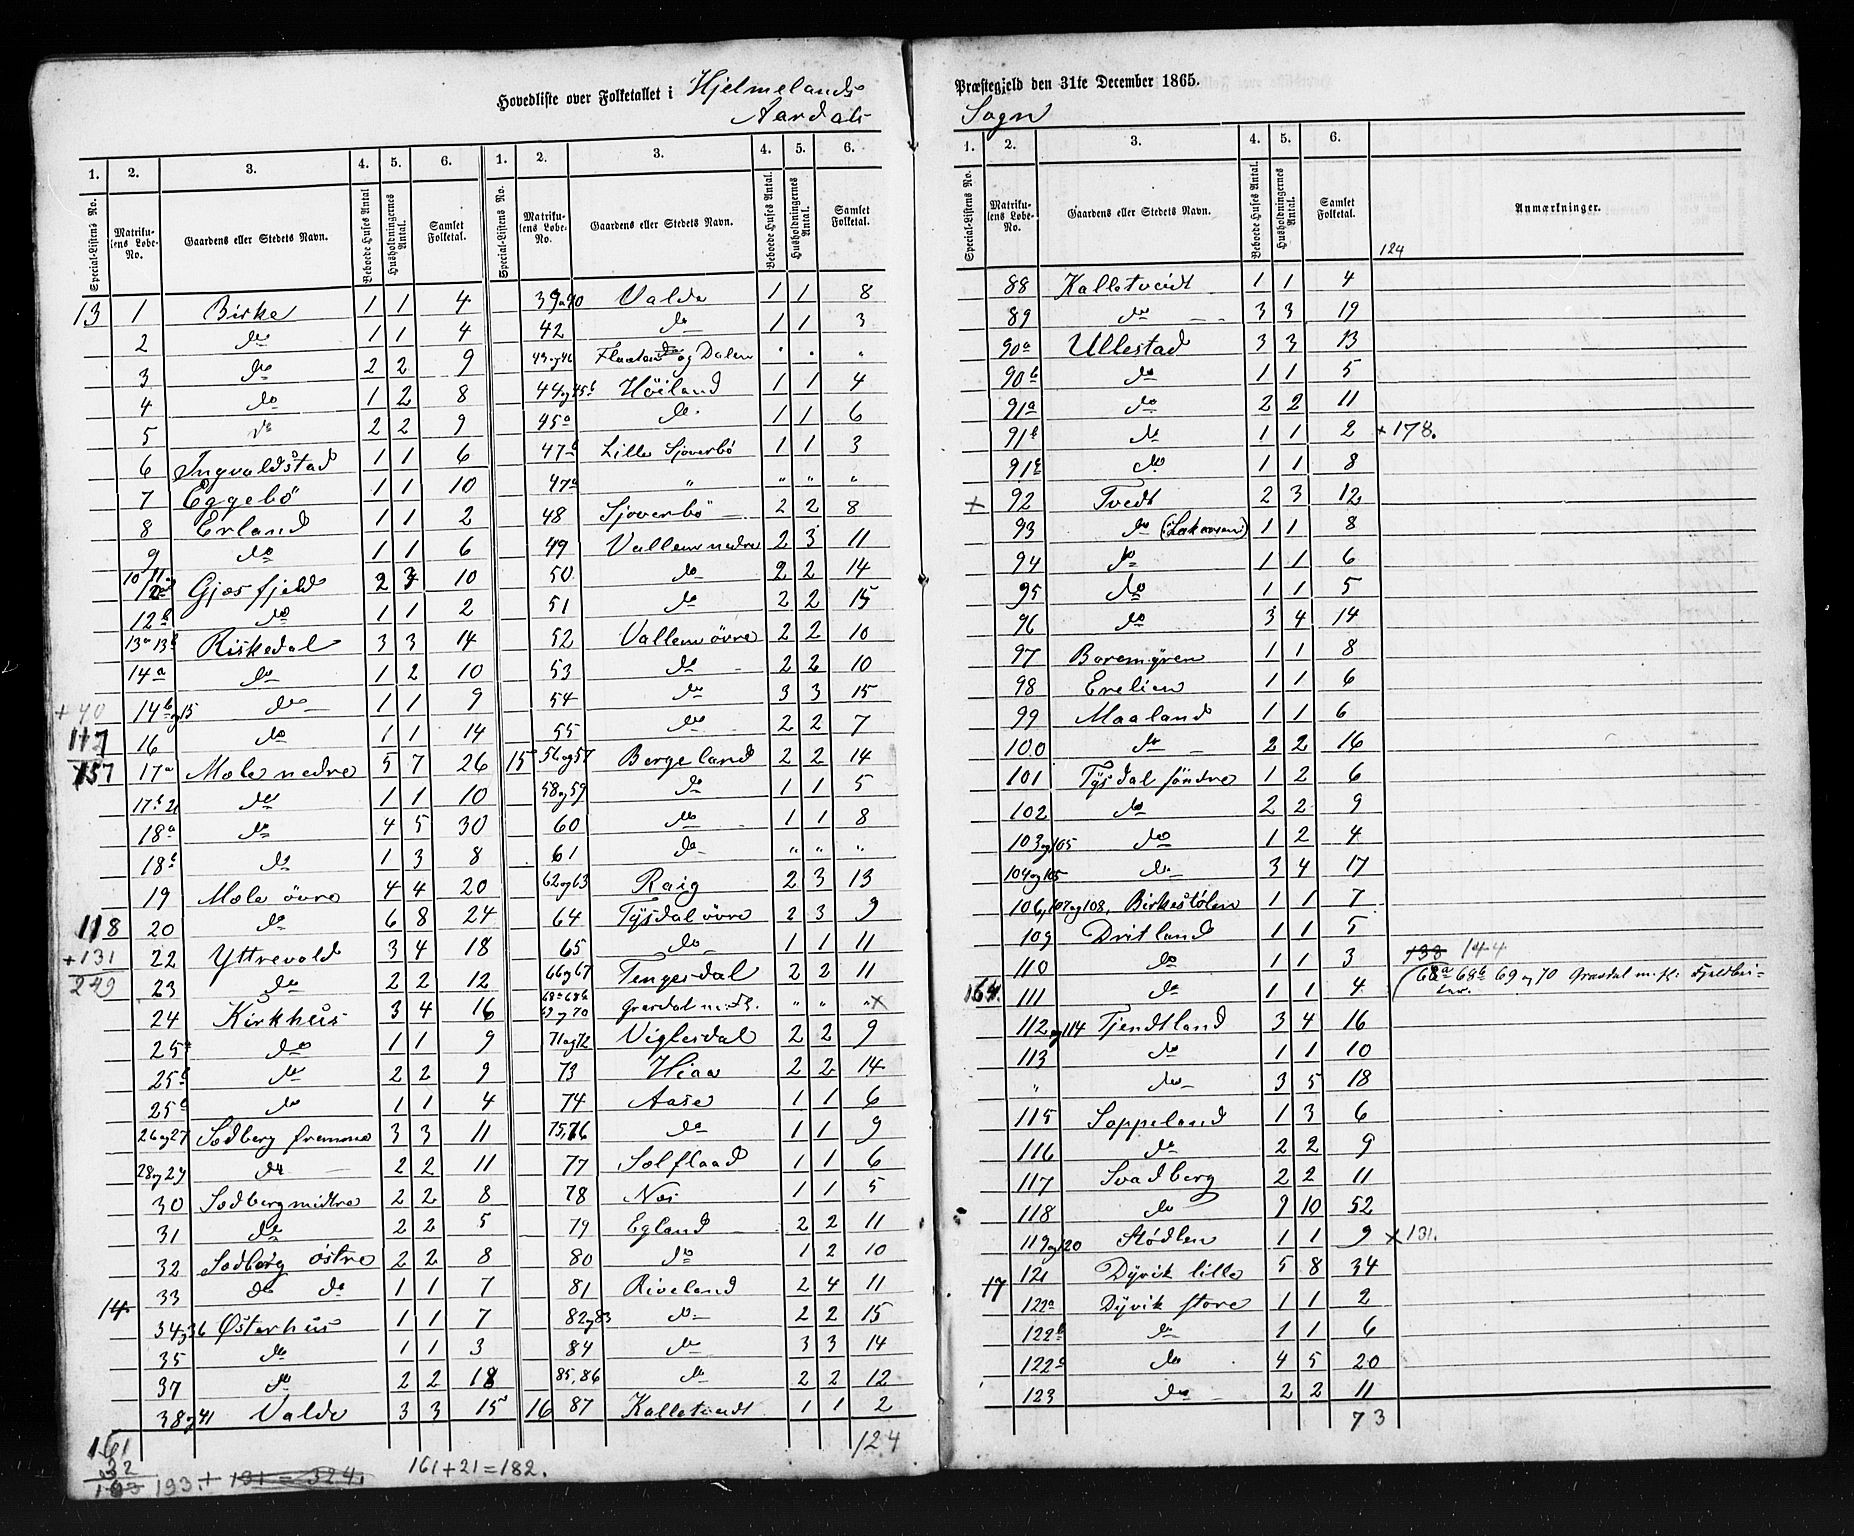 Hovedliste over Folketallet i Hjelmelands Præstegjeld den 31te December 1865.
Aardals Sogn
1. 2. 3. 4. 5. 6. 1. 2. 3. 4. 5. 6.
Special-Listens No. Matrikulens Løbe-No. Gaardens eller Stedets Navn. Beboede Huses Antal Husholdningernes Antal. Samlet Folketal. Special-Listens No. Matrikulens Løbe-No. Gaardens eller Stedets Navn. Beboede Huses Antal. Husholdningernes Antal. Samlet Folketal.
13 1 Birke 1 1 4
2 do 1 1 4
3 do 2 2 9
4 do 1 2 8
5 do 2 2 9
6 Ingvaldstad 1 1 6
7 Eggebö 1 1 10
8 Erland 1 1 2
9 do 1 1 6
10 11 og 12a Gjosfjeld 2 3 10
12b do 1 1 2
13a 13b Riskedal 3 3 14
14a do 1 2 10
+40 14b og 15 do 1 1 9
117 16 do 1 1 14
157 17a Mole nedre 5 7 26
17b do 1 1 10
18a do 4 5 30
18b do 1 3 8
19 Mole övre 4 4 20
118 20 do 6 8 24
+131 22 Yttrevold 3 4 18
249 23 do 2 2 12
24 Kirkhus 3 4 16
25a do 1 1 9
25b do 2 2 9
25c do 1 1 4
26 og 27 Sodberg fremme 3 3 11
28 og 29 do 2 2 11
30 Sodberg midtre 2 2 8
31 do 2 2 5
32 Sodberg östre 2 2 8
33 do do 1 1 7
14 34 og 36 Østerhus 1 1 7
35 do 1 1 3
37 do 2 2 18
38 og 41 Valde 3 3 15
39 og 40 Valde 1 1 8
42 do 1 1 3
43 og 46 og Dalen " " "
44 og 45b Höiland 1 1 4
45a do 1 1 6
47b Lille Sjoverbö 1 1 3
47a " " " "
48 Sjoverbö 2 2 8
49 Vallem nedre 2 3 11
50 do 2 2 14
51 do 2 2 15
52 Vallem övre 2 2 10
53 do 2 2 10
54 do 3 3 15
55 do 2 2 7
15 56 og 57 Bergeland 2 2 14
58 og 59 do 1 1 5
60 do 1 1 8
61 do " " "
62 og 63 Raig 2 3 13
64 Tysdal övre 2 3 9
65 do 1 1 11
66 og 67 Tengesdal 2 2 11
68a 68b 69 og 70 Gravdal m. fl. " " " x
71 og 72 Viglesdal 2 2 9
73 Hiaa 2 2 14
74 Aase 1 1 6
75, 76 do 1 1 9
77 Solflaad 1 1 6
78 Nes 1 1 5
79 Egland 2 2 11
80 do 1 2 10
81 Riveland 2 4 11
82 og 83 do 2 2 15
84 do 3 3 14
85, 86 do 2 2 12
16 87 Kalletvedt 1 1 2
124
161
32
193 193. + 131 = 324. 161 + 21 = 182.
1. 2. 3. 4. 5. 6.
Special-Listens No. Matrikulens Løbe-No. Gaardens eller Stedets Navn. Beboede Huses Antal. Husholdningernes Antal. Samlet Folketal. Anmærkninger.
124
88 Kalletveidt 1 1 4
89 do 3 3 19
90a Ullestad 3 3 13
90b do 1 1 5
91a do 2 2 11
91b do 1 1 2 +178.
91c do 1 1 8
x 92 Tvedt 2 3 12
93 do 1 1 8
94 do 1 1 6
95 do 1 1 5
96 do 3 4 14
97 Boremyren 1 1 8
98 Erelien 1 1 6
99 Maaland 1 1 6
100 do 2 2 16
101 Tysdal söndre 1 2 6
102 do 2 2 9
103 og 105 do 1 2 4
104 og 105 do 3 4 17
106, 107 og 108, Birkestölen 1 1 7
109 Dritland 1 1 5
110 do 1 1 3 133 144
164. 111 do 1 1 4 (68a 68b 69 og 70 Gravdal m. fl. Fjeldbeiter.
112 og 114 Tjendtland 3 4 16
113 do 1 1 10
" do 3 5 18
115 Soppeland 1 3 6
116 do 2 2 9
117 Svadberg 2 2 11
118 do 9 10 52
119 og 120 Stödlen 1 1 9 x131.
17 121 Dyvik lille 5 8 34
122a Dyvik store 1 1 2
122b do 1 1 6
122c do 4 5 20
123 do 2 2 11
73